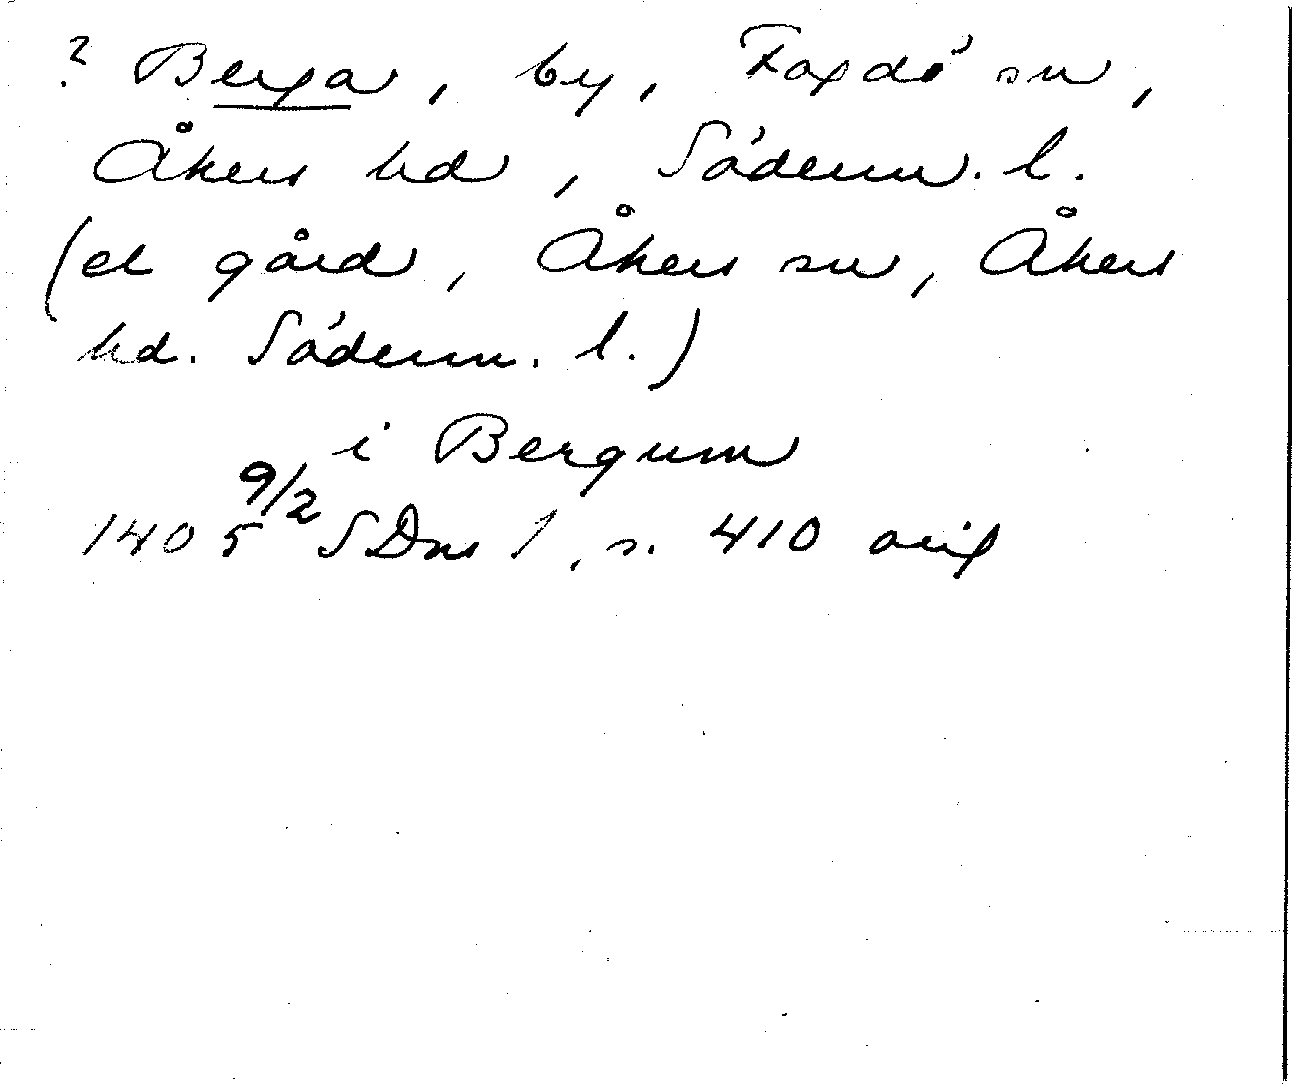 ? Berga, by, Fogdö sn,
Åkers hd, Söderm. l.
(el gård, Åkers sn, Åkers
hd. Söderm. l.)
i Bergum
1405 9/2 SDns 1, s. 410 orig